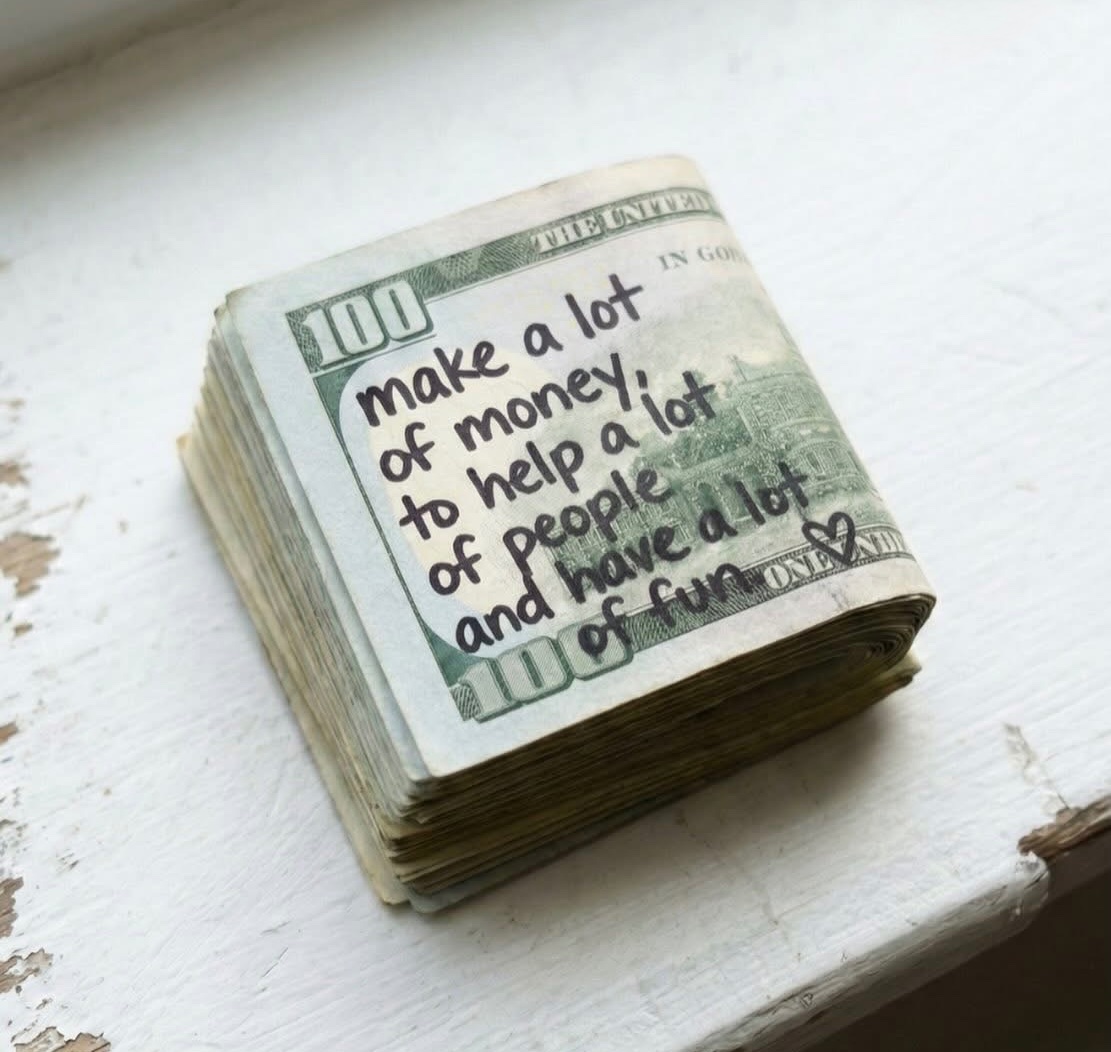 THE UNITED
IN GOD
100
make a lot
of money,
to help a lot
of people
and have a lot
of fun. ♡
ONE
100